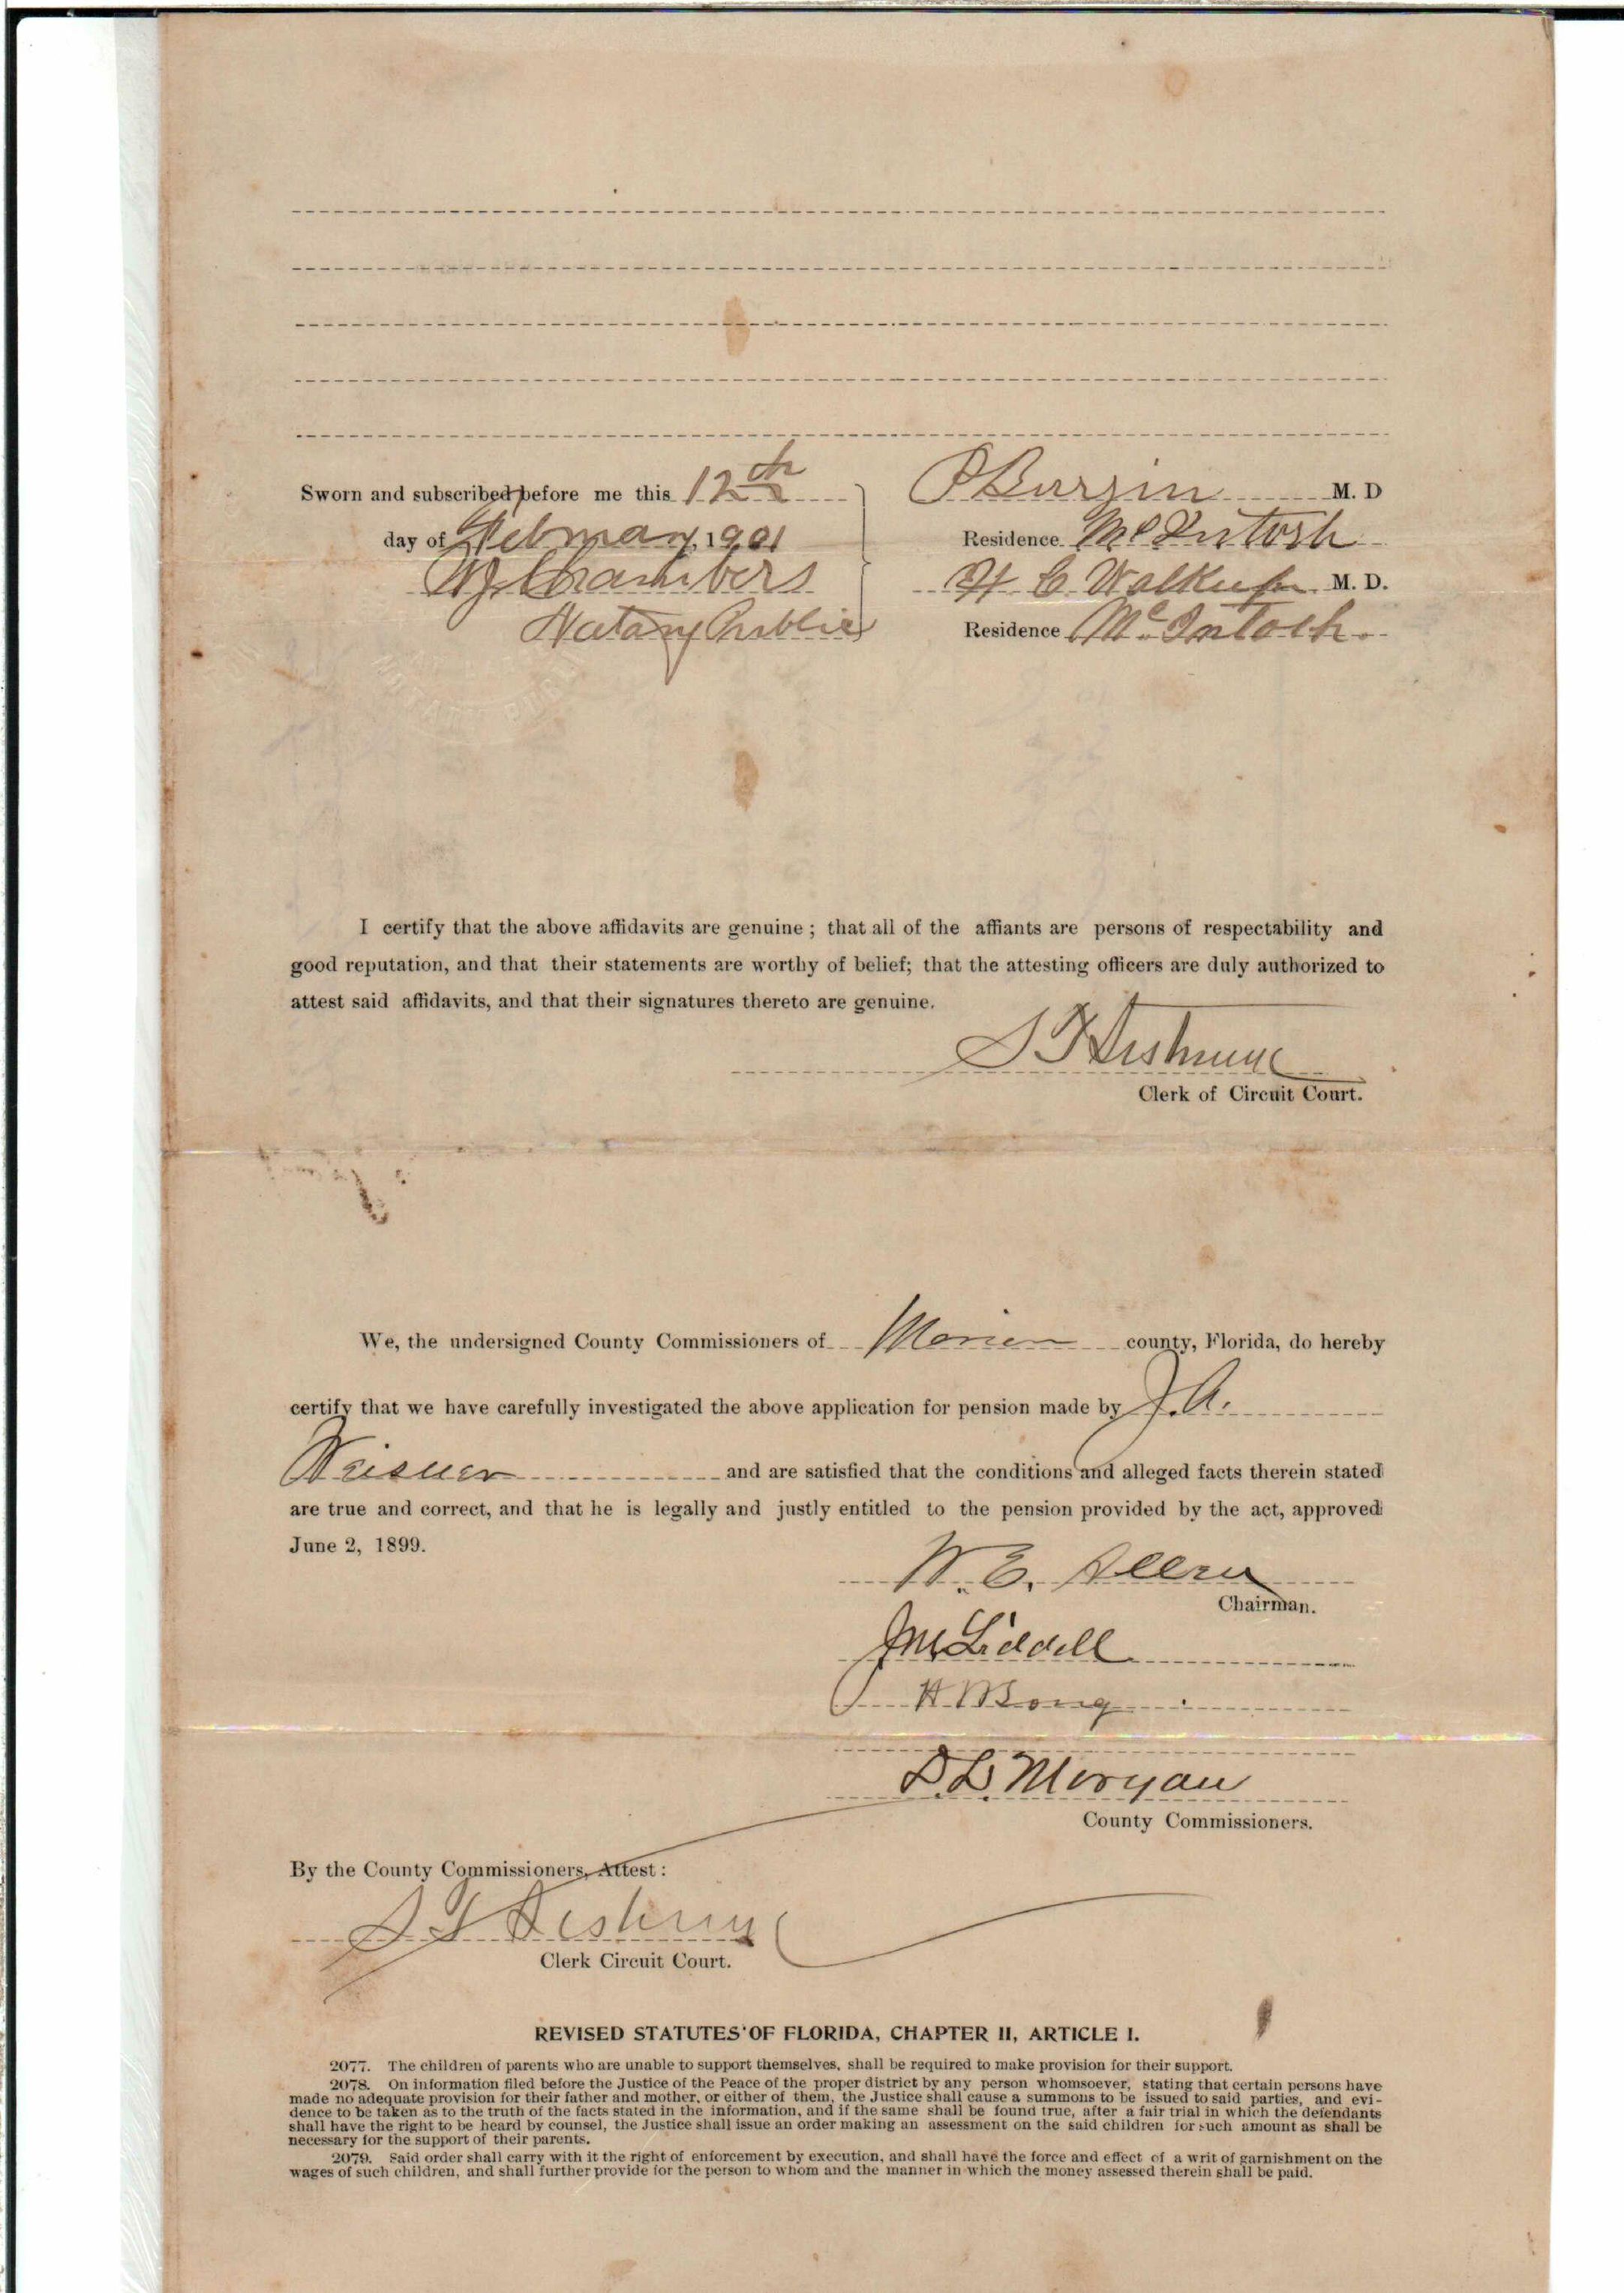 Sworn and subscribed before me this 12th
day of February, 1901
Chambers
Notary Public
M. D
Residence McIntosh
H C Walkup M. D.
Residence McIntosh.
NOTARY PUBLIC
I certify that the above affidavits are genuine; that all of the affiants are persons of respectability and
good reputation, and that their statements are worthy of belief; that the attesting officers are duly authorized to
attest said affidavits, and that their signatures thereto are genuine.
Clerk of Circuit Court.
We, the undersigned County Commissioners of Marion county, Florida, do hereby
certify that we have carefully investigated the above application for pension made by J. A.
and are satisfied that the conditions and alleged facts therein stated
are true and correct, and that he is legally and justly entitled to the pension provided by the act, approved
June 2, 1899.
W. E. Allen
Chairman.
Liddell
D. L. Morgan
County Commissioners.
By the County Commissioners, Attest:
Clerk Circuit Court.
REVISED STATUTES OF FLORIDA, CHAPTER II, ARTICLE I.
2077. The children of parents who are unable to support themselves, shall be required to make provision for their support.
2078. On information filed before the Justice of the Peace of the proper district by any person whomsoever, stating that certain persons have
made no adequate provision for their father and mother, or either of them, the Justice shall cause a summons to be issued to said parties, and evi-
dence to be taken as to the truth of the facts stated in the information, and if the same shall be found true, after a fair trial in which the defendants
shall have the right to be heard by counsel, the Justice shall issue an order making an assessment on the said children for such amount as shall be
necessary for the support of their parents.
2079. Said order shall carry with it the right of enforcement by execution, and shall have the force and effect of a writ of garnishment on the
wages of such children, and shall further provide for the person to whom and the manner in which the money assessed therein shall be paid.